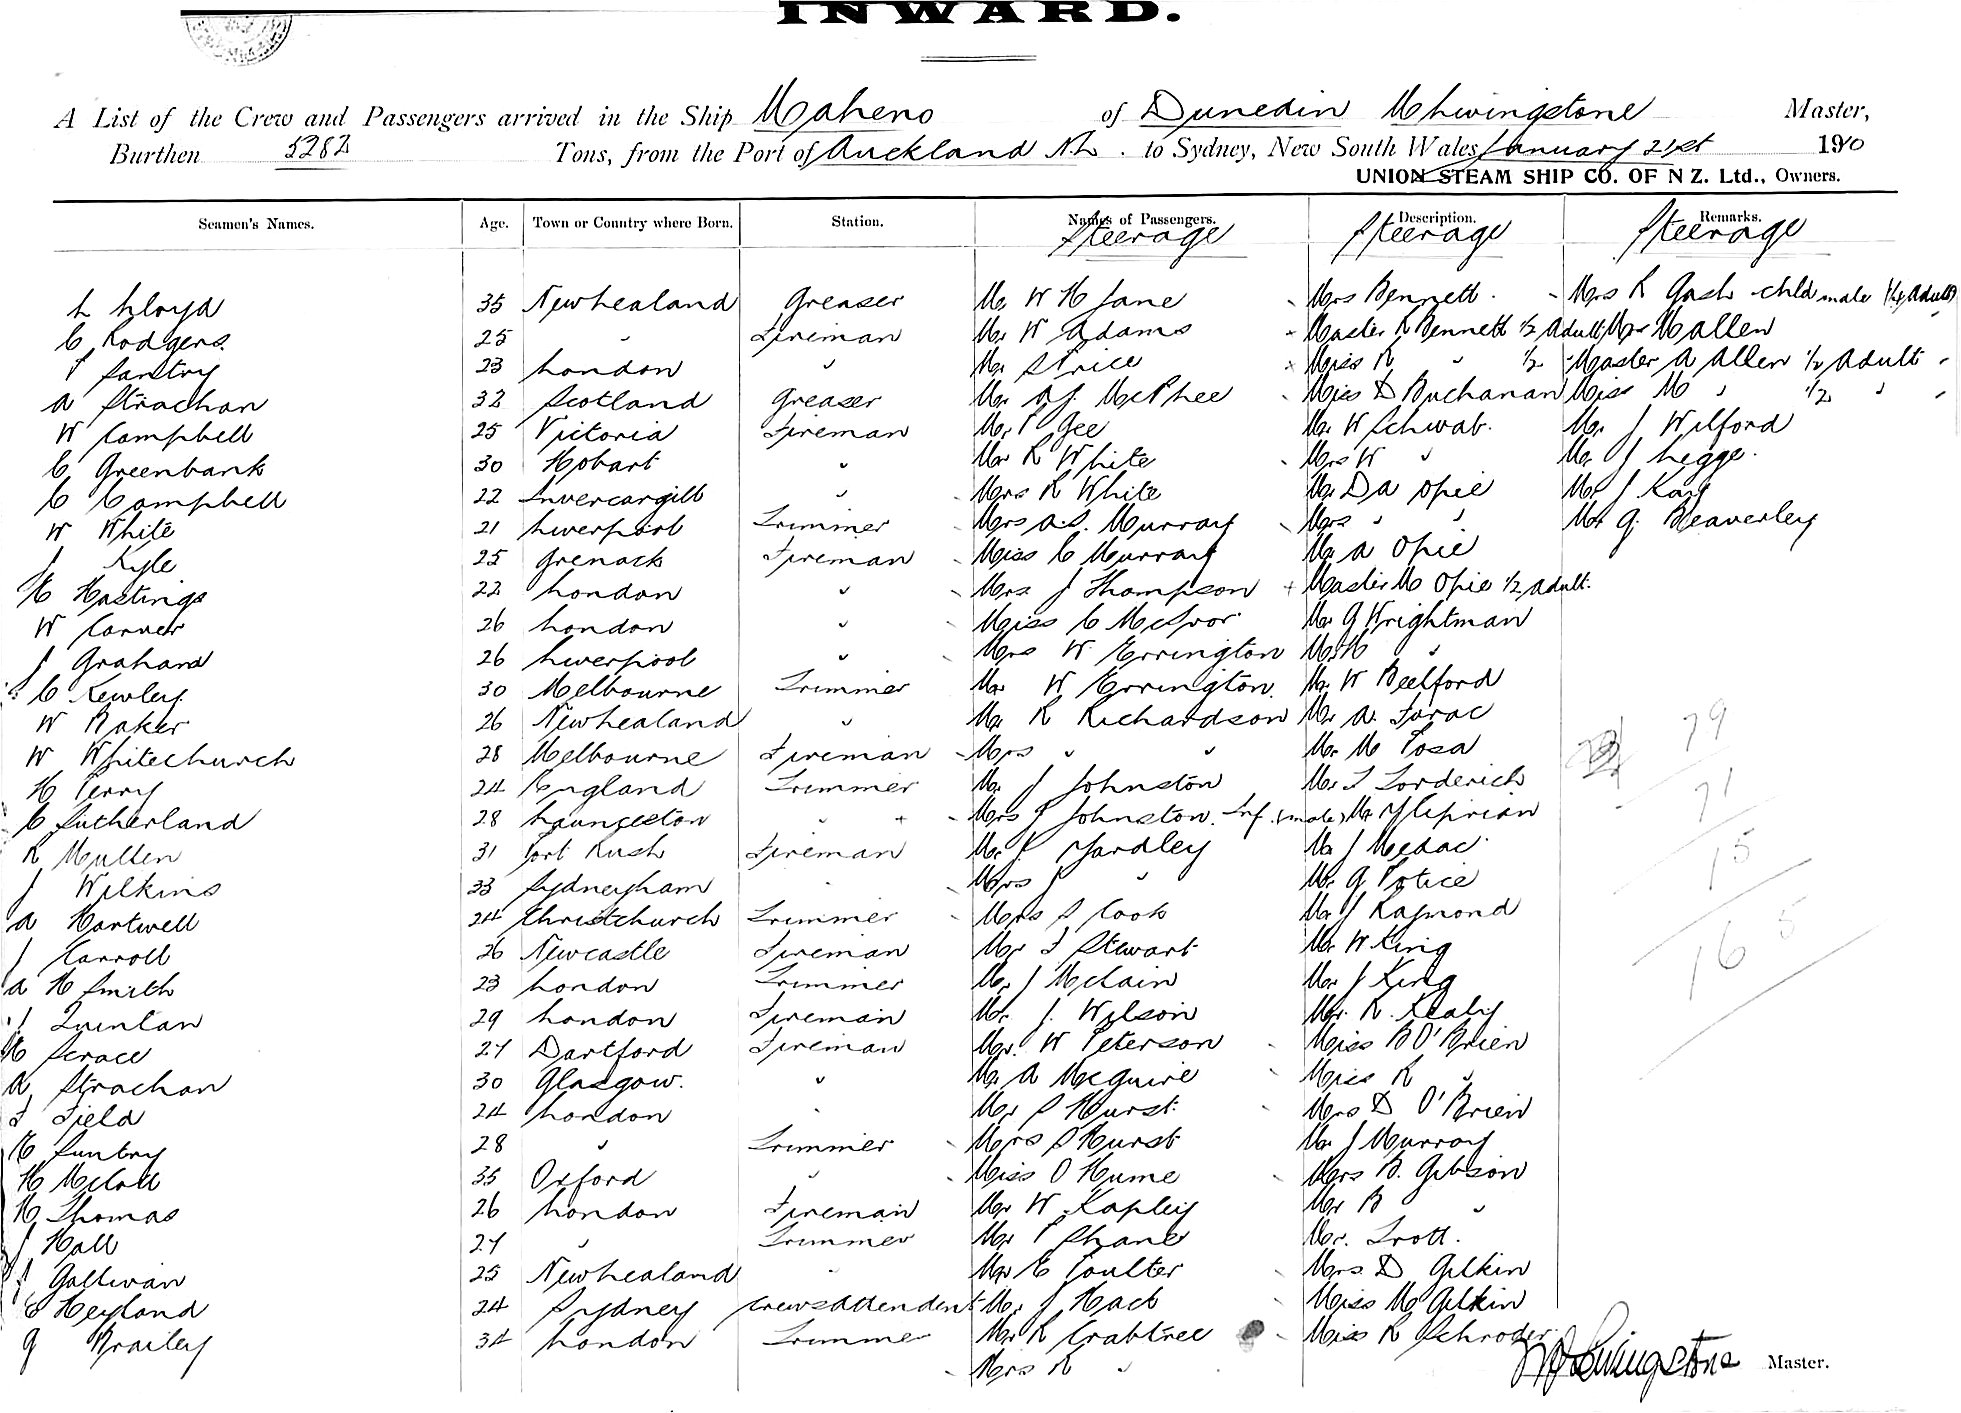 INWARD.
A List of the Crew and Passengers arrived in the Ship Maheno of Dunedin M Livingstone Master,
Burthen 5282 Tons, from the Port of Auckland N.Z. to Sydney, New South Wales January 21st 1910
UNION STEAM SHIP CO. OF N Z. Ltd., Owners.
Seamen's Names. Age. Town or Country where Born. Station. Names of Passengers. Description. Remarks.
Steerage Steerage Steerage
L Lloyd 35 New Zealand Greaser Mr W H Jane Mrs Bennett. Mrs R Gash child male (1/2 Adult)
C Rodgers 25 " Fireman Mr W Adams Master R Bennett 1/2 Adult Mrs M Allen
23 London " Mr S Price Miss R " 1/2 Master A Allen 1/2 Adult
A Strachan 32 Scotland Greaser Mr A J McPhee Miss D Buchanan Miss M " 1/2 "
W Campbell 25 Victoria Fireman Mr P Gee Mr W Schwab. Mr J Wilford
C Greenbank 30 Hobart " Mr R White Mrs W " Mr J Legge.
C Campbell 22 Invercargill " Mrs R White Mr D A Opie Mr J Kay
W White 21 Liverpool Trimmer Mrs A.S. Murray Mrs " " Mr G. Beaverley
J Kyle 25 Grenock Fireman Miss C Murray Mr A Opie
H Hastings 22 London " Mrs J Thompson Master M Opie 1/2 Adult.
W Carver 26 London " Miss C McIvor Mr G Wrightman
J Graham 26 Liverpool " Mrs W Errington Mr H "
C Kewley 30 Melbourne Trimmer Mr W Errington Mr W Beelford
W Baker 26 New Zealand " Mr R Richardson Mr A. Farac
W Whitechurch 28 Melbourne Fireman Mrs " " Mr M Posa
H Perry 24 England Trimmer Mr J Johnston Mr T Torderich
C Sutherland 28 Launceston " Mrs J Johnston. Inf. (male) Mr
R Mullen 31 Port Rush Fireman Mr J Yardley Mr J Medac.
J Wilkins 33 Sydneyham " Mrs J " Mr G Potice
A Hartwell 24 Christchurch Trimmer Mrs S Cook Mr J Raymond
J Carroll 26 Newcastle Fireman Mr T Stewart Mr W King
A H Smith 23 London Trimmer Mr J McLain Mr J King
J Quinlan 29 London Fireman Mr. J. Wilson Mr. R. Kealy
H Scrace 27 Dartford Fireman Mr. W Peterson Miss B O'Brien
A Strachan 30 Glasgow. " Mr A McGuire Miss R "
F Field 24 London " Mr S Hurst. Mrs D O'Brien
28 " Trimmer Mrs S Hurst Mr J Murray
H McColl 35 Oxford " Miss O Hume Mrs B. Gibson
H Thomas 26 London Fireman Mr W Kapley Mr B "
J Hall 27 " Trimmer Mr P Shane Mr. Trott.
J Gallivan 25 New Zealand " Mr E Coulter Mrs D Gilkin
C Heyland 24 Sydney Crews Attendent Mr J Hack Miss M Gilkin
G Brailey 34 London Trimmer Mr R Crabtree Miss R Schroder
Mrs R "
79
71
15
165
M Livingstone Master.